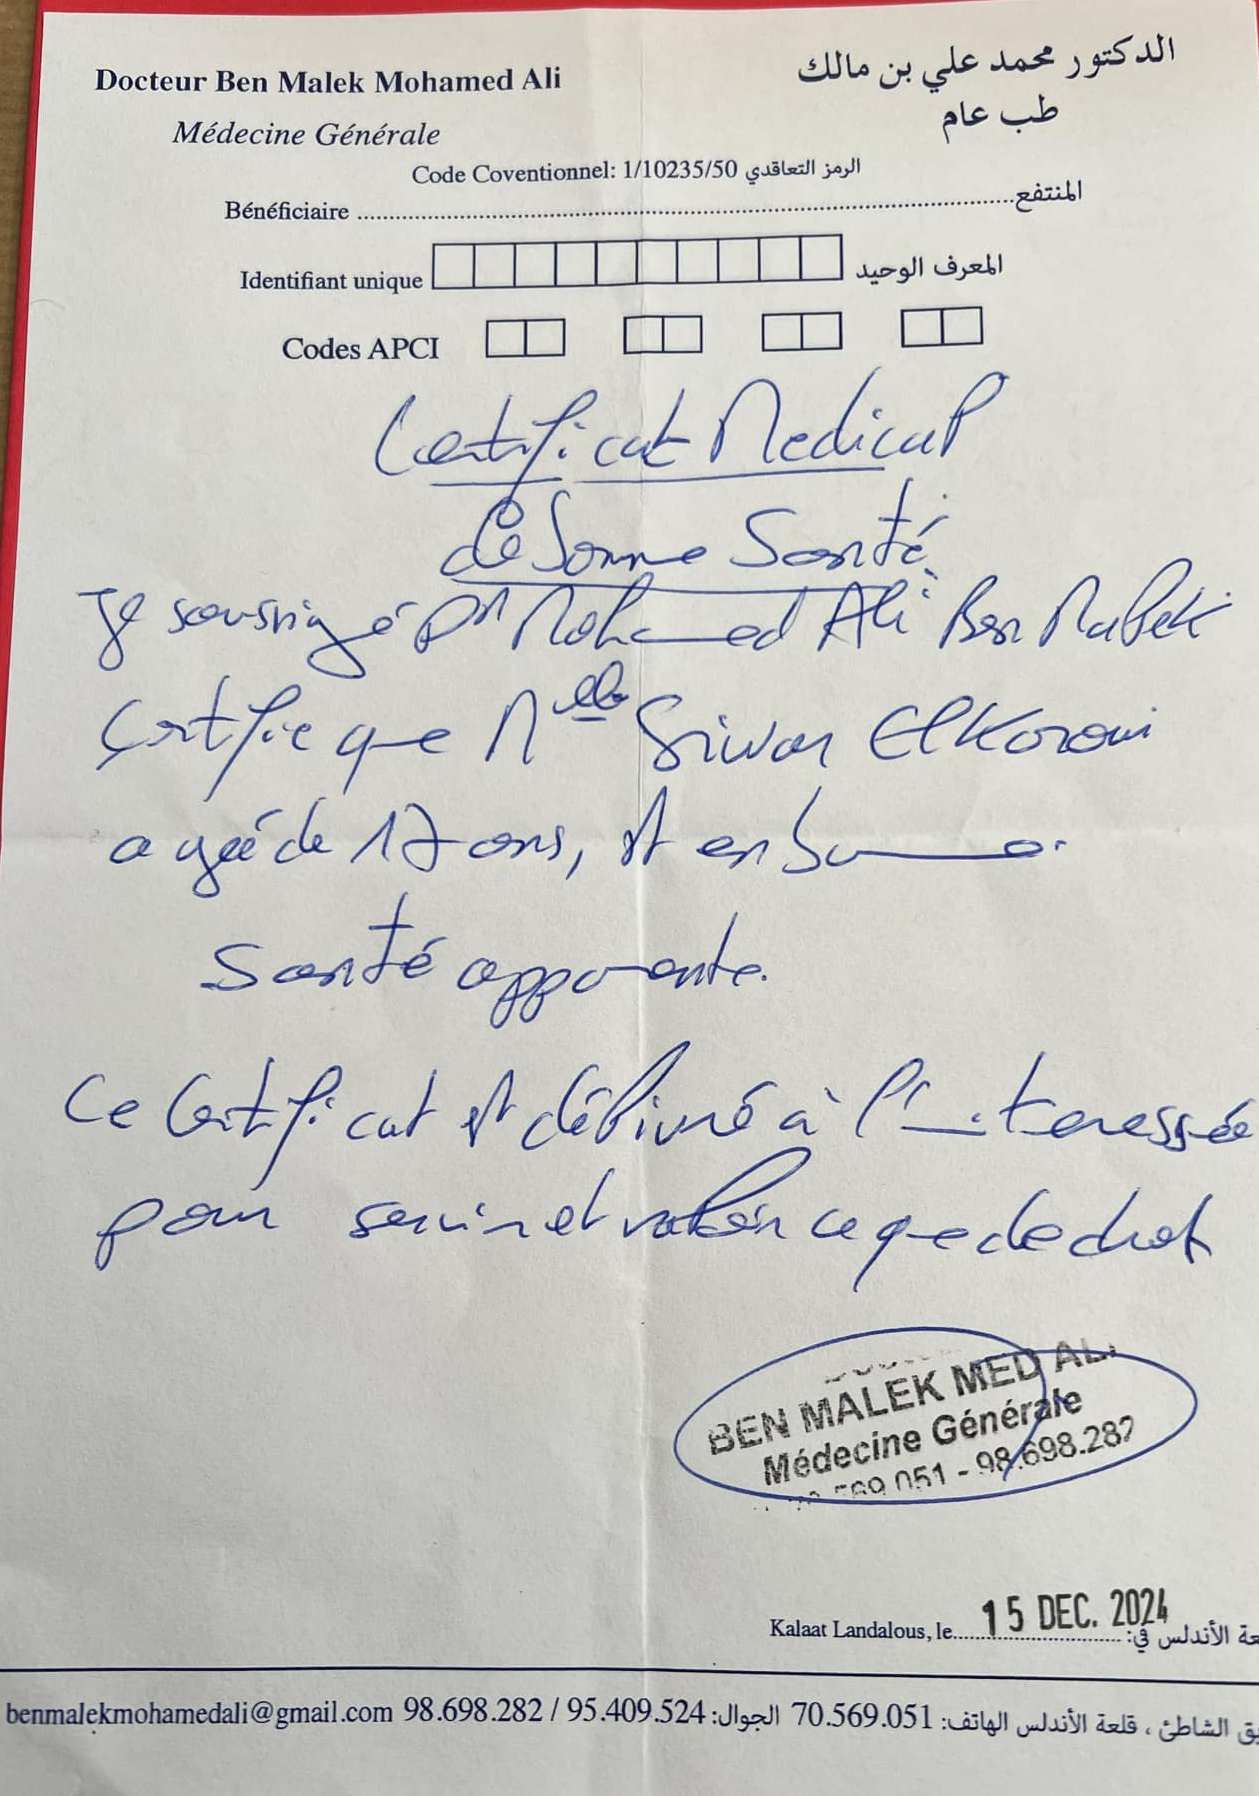 Docteur Ben Malek Mohamed Ali
الدكتور محمد علي بن مالك
Médecine Générale
طب عام
Code Coventionnel: 1/10235/50 الرمز التعاقدي
Bénéficiaire ........ المنتفع
Identifiant unique المعرف الوحيد
Codes APCI
Certificat Medical
de bonne Santé
Je soussigné Dr Mohamed Ali Ben Malek
Certifie que Mlle Siwar
agée de 17 ans, est en bonne
Santé apparente.
Ce Certificat est délivré à l'interessée
pour servir et valoir ce que de droit
BEN MALEK MED ALI
Médecine Générale
569.051 - 98.698.282
Kalaat Landalous, le 15 DEC. 2024 الأندلس في:
benmalekmohamedali@gmail.com 98.698.282 / 95.409.524 الجوال: 70.569.051 الشاطئ ، قلعة الأندلس الهاتف: